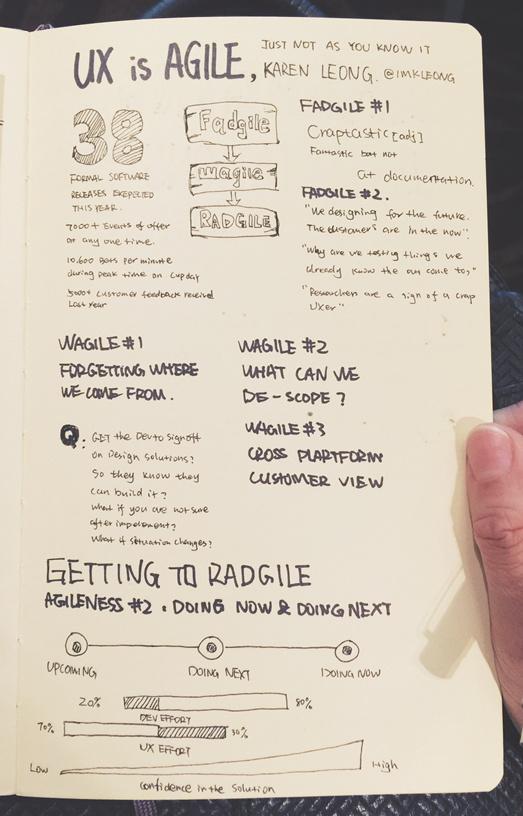 UX is AGILE,
JUST NOT AS YOU KNOW IT
KAREN LEONG. @IMKLEONG
38
FORMAL SOFTWARE
RELEASES EXEPECTED
THIS YEAR.
7000+ Events of offer
at any one time.
10,600 Bets per minute
during peak time on Cup day
5000+ Customer feedback received
Last Year
Fadgile
Wagile
RADGILE
FADGILE #1
Craptastic [adj]
Fantastic but not
at documentation.
FADGILE #2.
"We designing for the future.
The customer's are in the now"
"Why are we testing things we
already know the out come to,"
"Researchers are a sign of a crap
UXer"
WAGILE #1
FORGETTING WHERE
WE COME FROM.
WAGILE #2
WHAT CAN WE
DE-SCOPE?
WAGILE #3
CROSS PLARTFORM
CUSTOMER VIEW
Q: GET the Dev to Signoff
on Design solutions?
So they know they
can build it?
what if you are not sure
after implement?
What if situation changes?
GETTING TO RADGILE
AGILENESS #2. DOING NOW & DOING NEXT
UPCOMING
DOING NEXT
DOING NOW
20%
80%
DEV EFFORT
70%
30%
UX EFFORT
Low
High
confidence in the solution